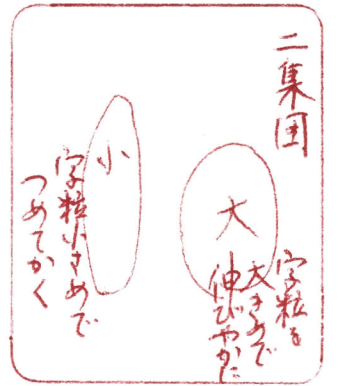 二集団
大
字粒を
大きめで
伸びやかに
小
字粒小さめで
つめてかく